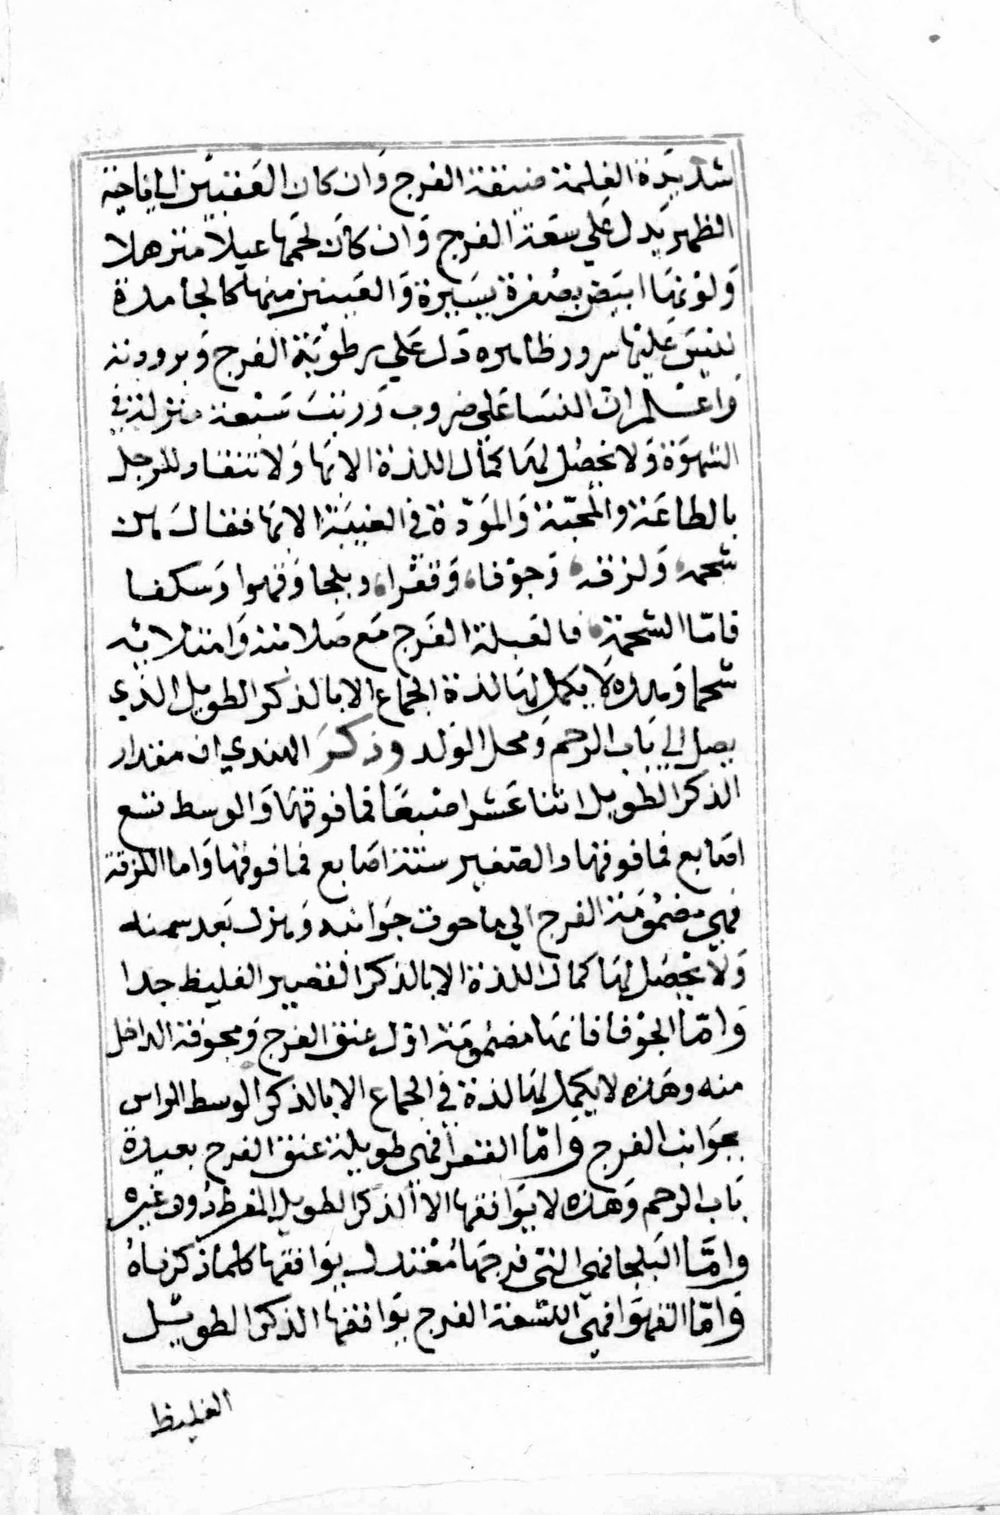 شديدة الغلمة ضيقة الفرج وان كان العقبين الي ناحية
الظهر يدل علي سعة الفرج وان كان لحمها عبلا مترهلا
ولونها ابيض بصفرة يسيرة والعينين منها كالجامدة
ليس عليها سرور ظاهره دل علي رطوبة الفرج وبرودته
واعلم ان النسا علي ضروب ورتبت سبعة منزلة في
الشهوة ولا يحصل لها كمال اللذة الا بها ولا تنقاد للرجل
بالطاعة والمحبة والمودة في الغيبة الا بها فقال من
شحمه ولزقه وجوفا وقعرا وبلجا وقهوا وسكفا
فاما الشحمة فالعبلة الفرج مع صلابته وامتلائه
شحما وهذه لا يكمل لها لذة الجماع الا بالذكر الطويل الذي
يصل الي باب الرحم ومحل الولد وذكر الهندي ان مقدار
الذكر الطويل اثنا عشر اصبعا فما فوقها والوسط تسع
اصابع فما فوقها والصغير ستة اصابع فما فوقها واما اللزقة
فهي مضمومة الفرج الي ما حوت جوانبه وهزل بعد سمنه
ولا يحصل لها كمال اللذة الا بالذكر القصير الغليظ جدا
واما الجوفا فانها مضمومة اول عنق الفرج ومجوفة الداخل
منه وهذه لا يكمل لها لذة في الجماع الا بالذكر الوسط الراس
بجوانب الفرج واما القعرا فهي طويلة عنق الفرج بعيدة
باب الرحم وهذه لا يوافقها الا الذكر الطويل المفرط دون غيره
واما البلجا فهي التي فرجها معتدل يوافقها كلما ذكرناه
واما القهوا فهي اللتسعة الفرج يوافقها الذكر الطويل
الغليظ